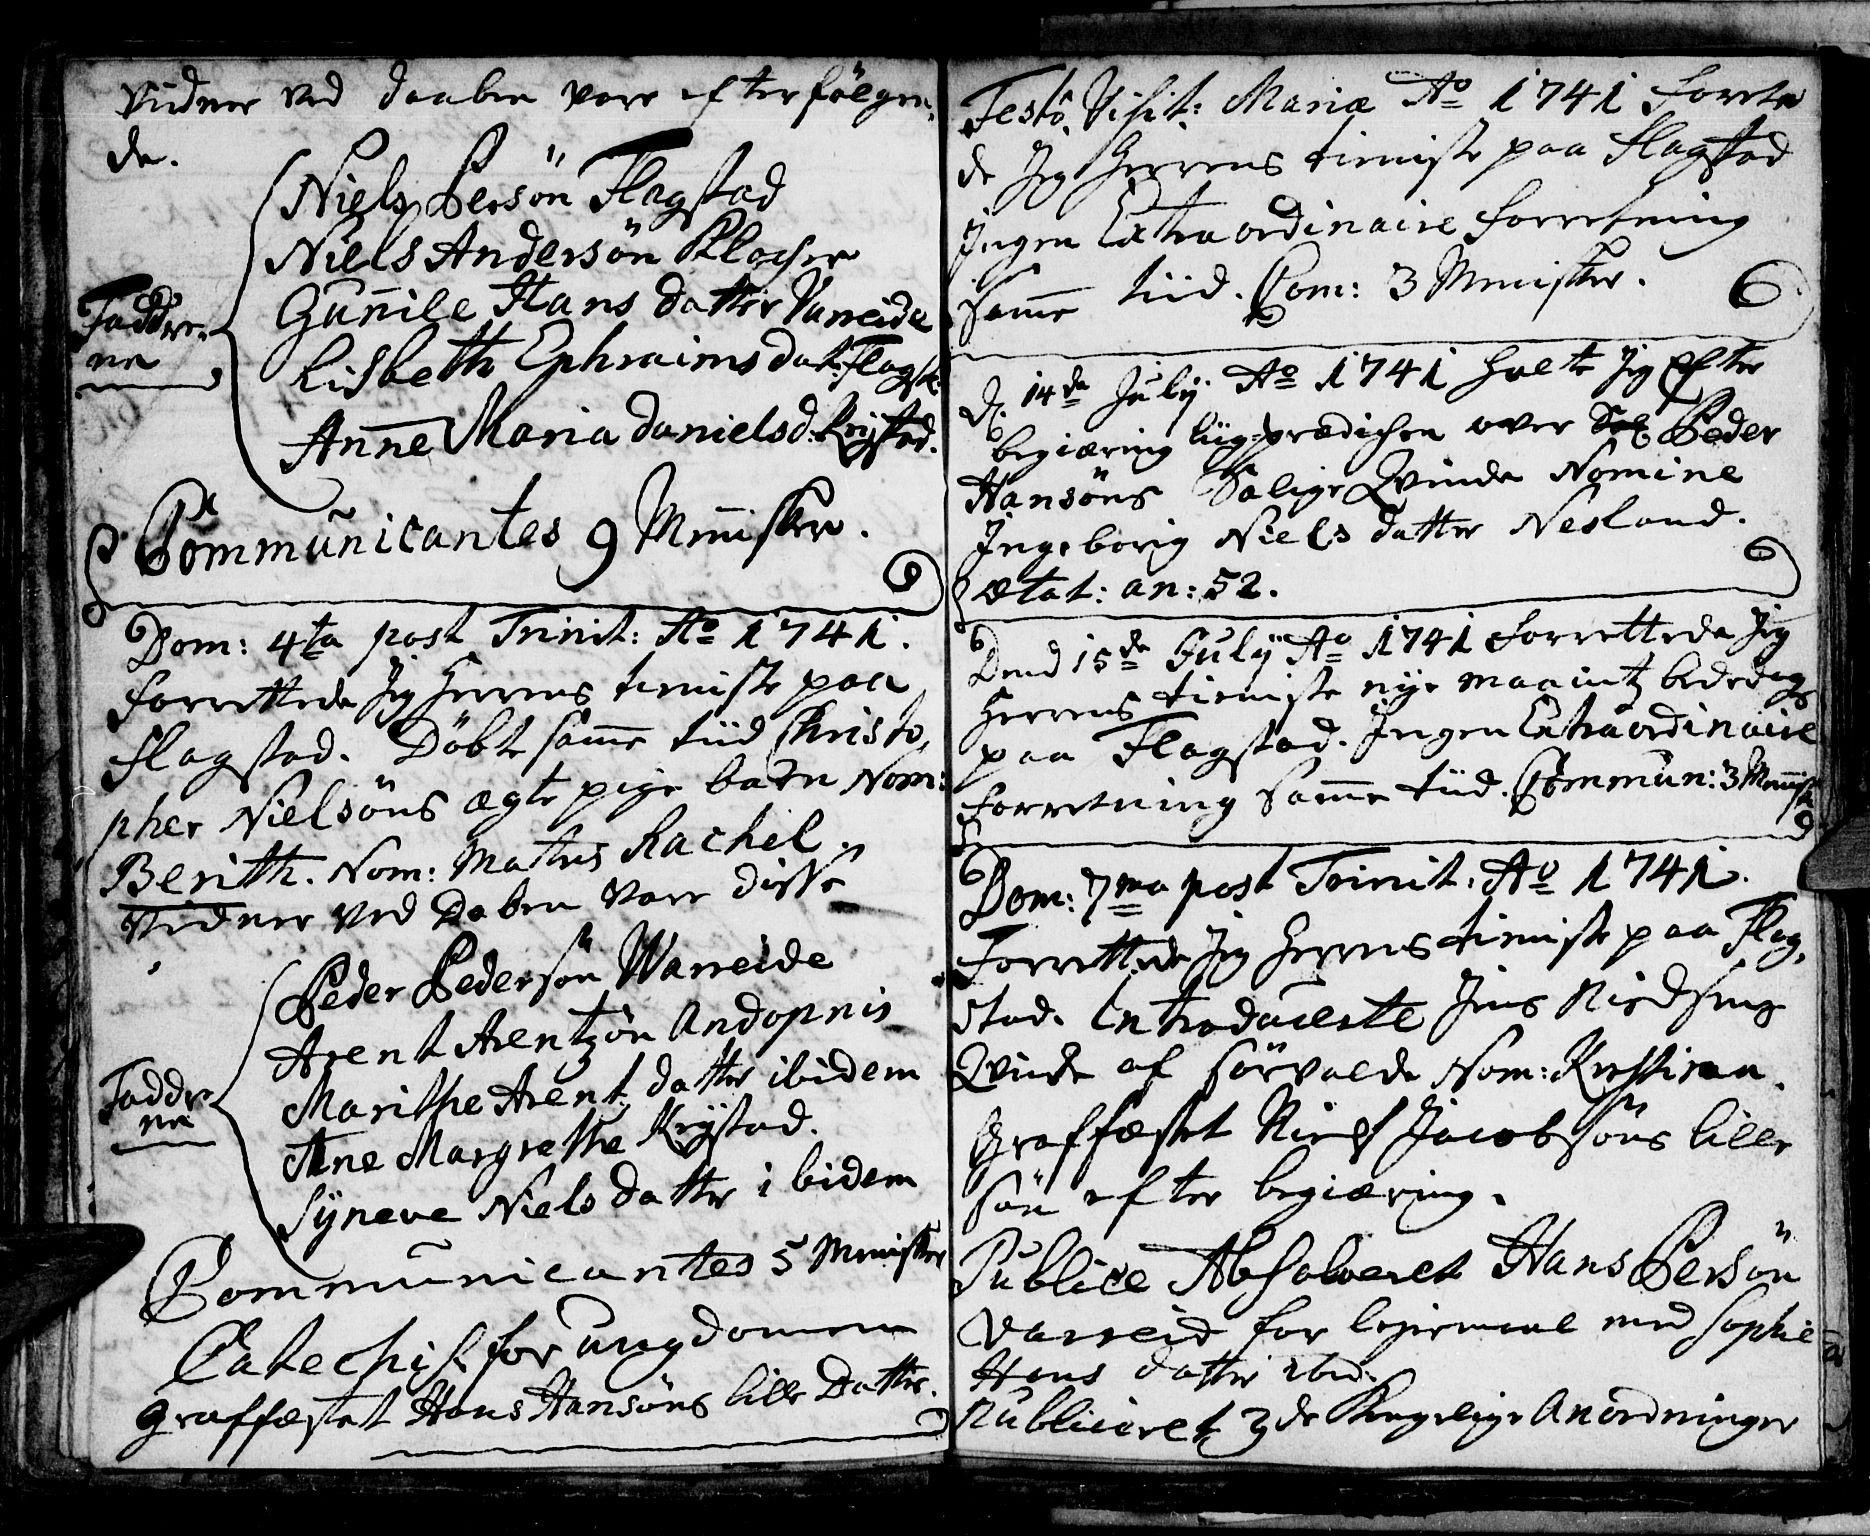 Vidner ved daaben vare efterfölgen,
de.
Niels Persön Flagstad
Niels Andersön Klocher
Gunnile Hans datter Varreide
Lisbeth Ephraims dat: Flagst:
Anne Maria Danielsd: Krystad.
Faddre,
ne
Communicantes 9 Mennisker.
Dom: 4ta post Trinit: Ao 1741.
forrettede Jeg Herrens tieniste paa
Flagstad. Döbte samme tiid Christo,
pher Nielsöns ægte pige barn Nom:
Berith. Nom: Matris Rachel.
Vidner ved Daben vare disse
Peder Pedersön Warreide
Arent Arentzön Andopnis
Marithe Arent datter ibidem
Ane Margrethe Krystad.
Syneve Niels datter ibidem
Faddre
ne
Communicantes 5 Mennisker
Catechis. for ungdommen
Graffæstet Hans Hansöns lille Datter.
Festo Visit: Mariæ Ao 1741 forrete
de Jeg Herrens tieniste paa Flagstad
Ingen Extraordinaire forretning
samme tiid. Com: 3 Mennisker.
D. 14de July Ao 1741 holte Jeg efter
begiæring liig-prædichen over Peder
Hansöns Salige Qvinde Nomine
Ingeborig Niels datter Nesland.
ætat: an: 52.
Dend 15de July Ao 1741 forrettede Jeg
Herrens tieniste nye maanitz bededag
paa Flagstad. Ingen Extraordinaire
forretning samme tiid. Commun: 3 Mennisk
Dom: 7ma post Trinit: Ao 1741.
Forrettede Jeg Herrens tieniste paa Flag,
stad. Introducerte Jens
Qvinde af sörvalde Nom: Kirstiana.
Graffæstet Niels Jacobsöns lille
sön efter begiæring.
Publice Absolveret Hans Persön
Varreid for leyermaal med Sophie
Hans datter ibid.
Publiceret 3de Kongelige Anordninger